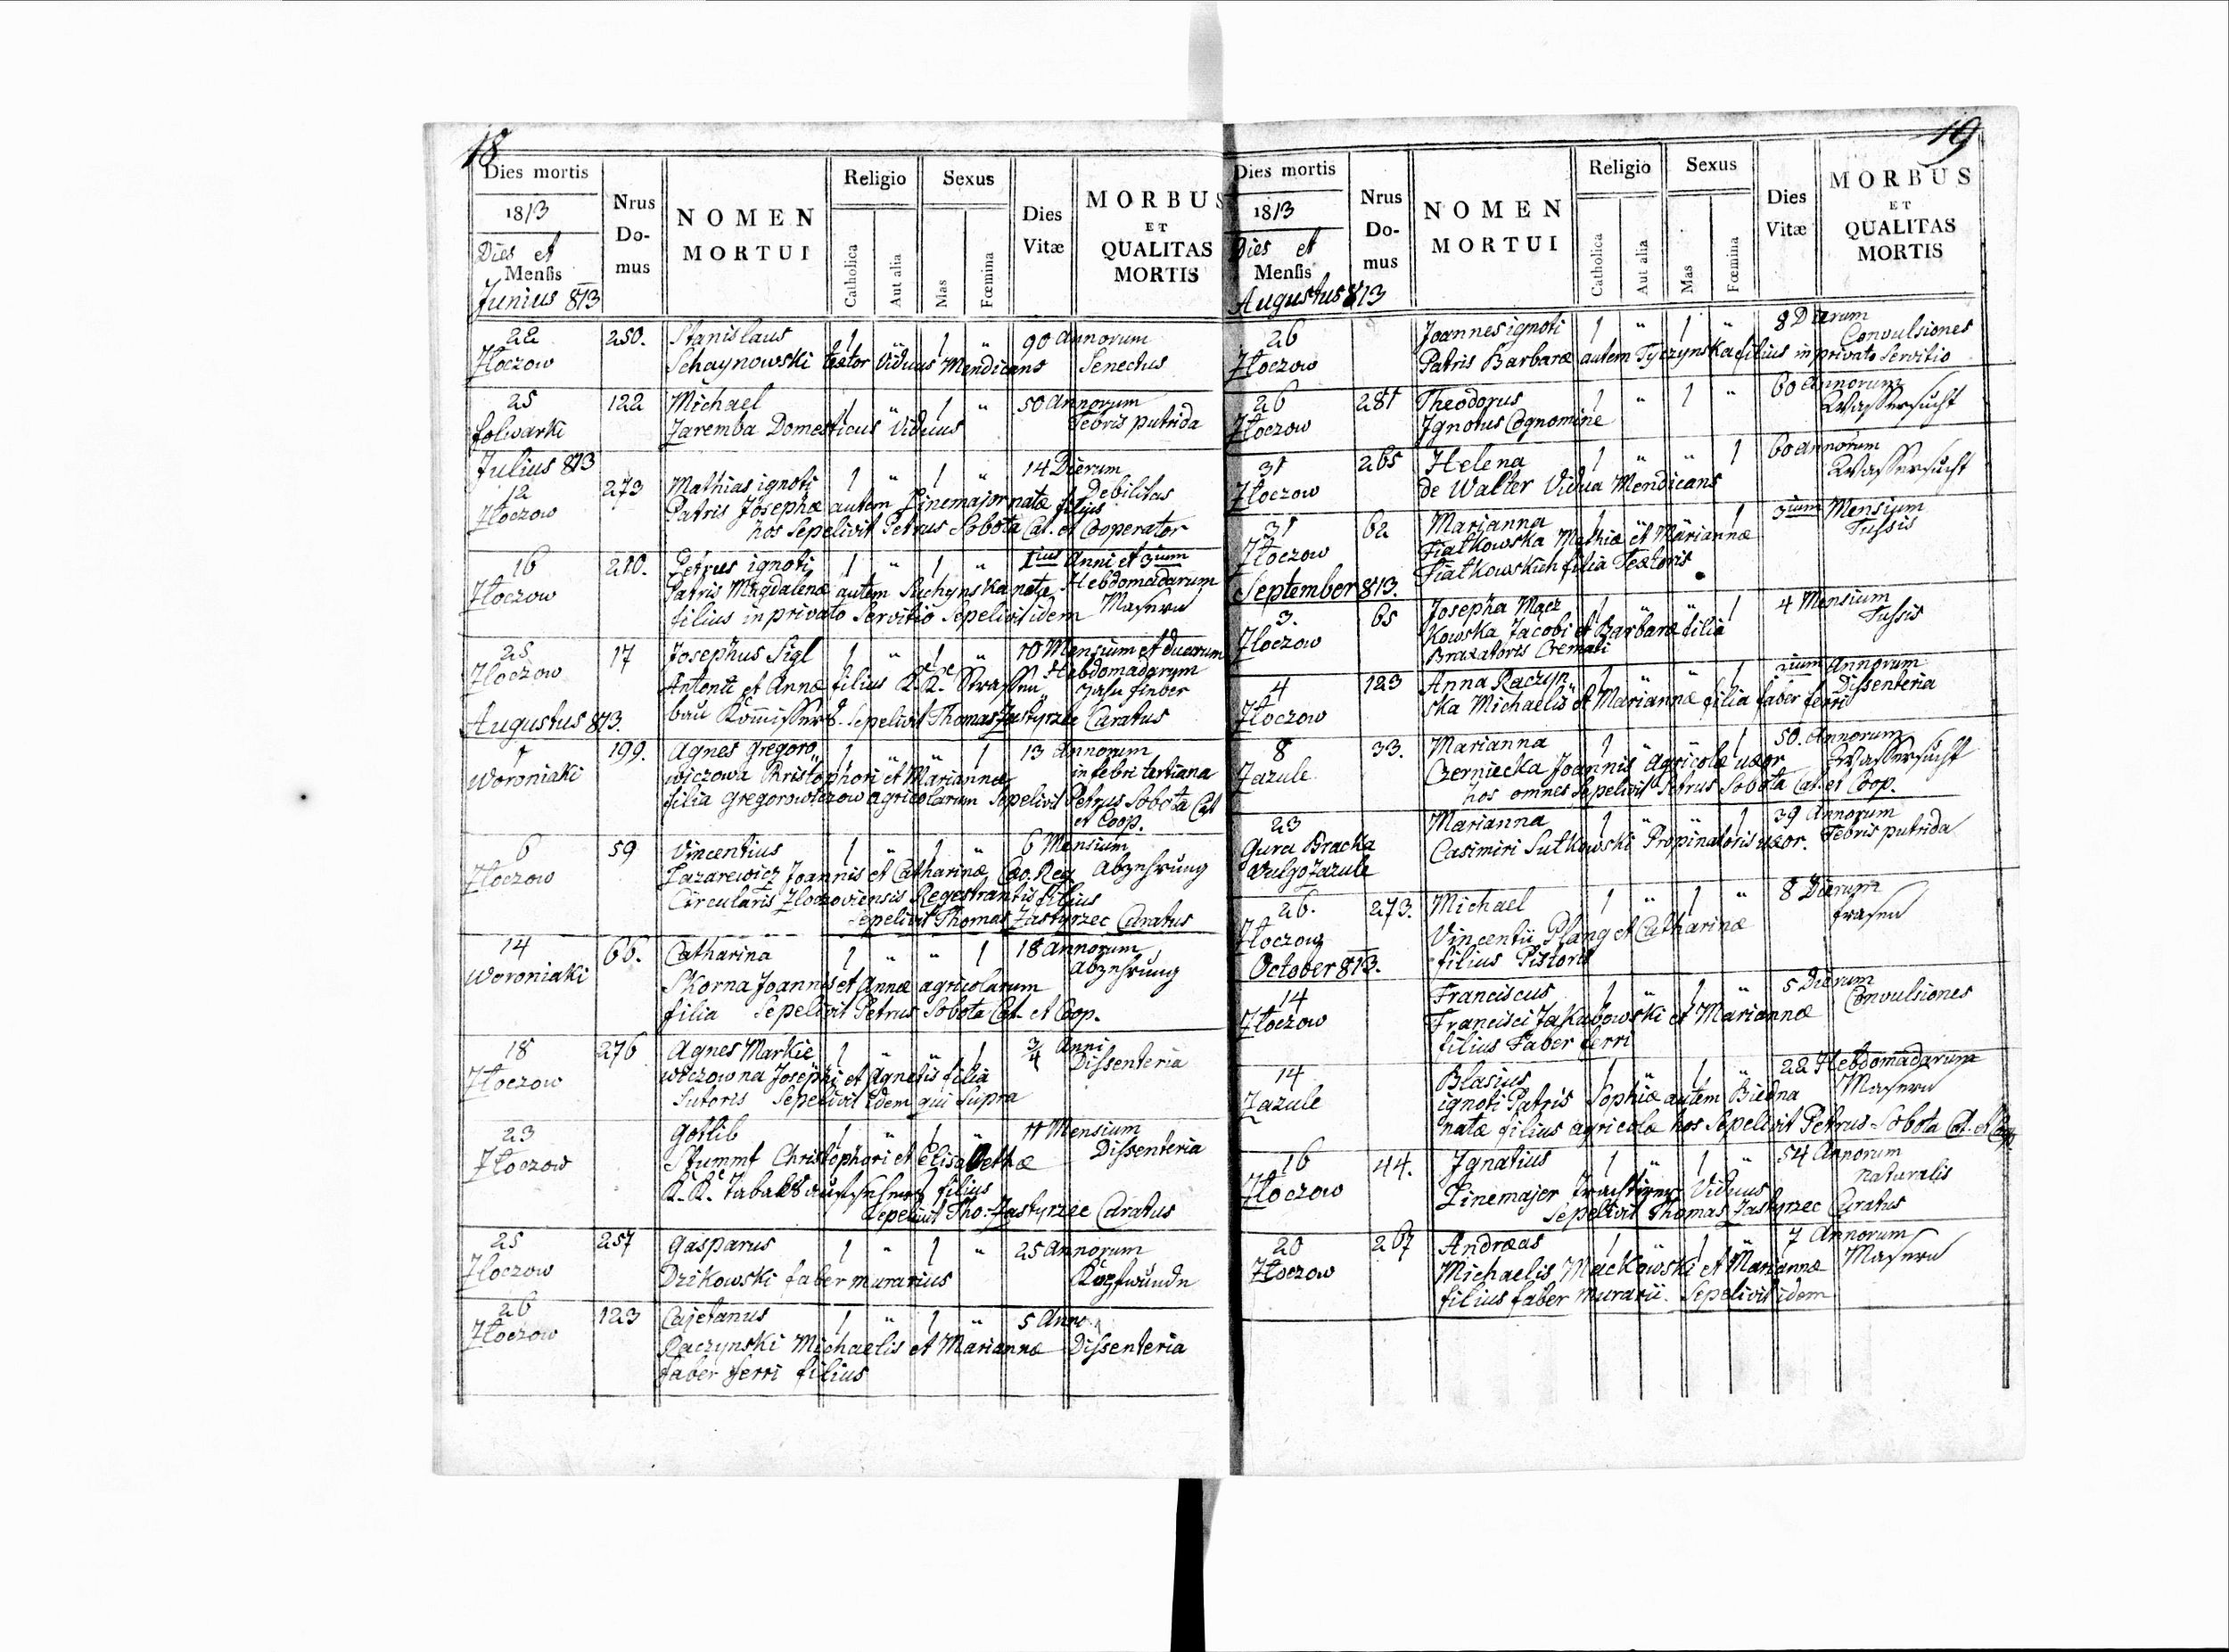 18
Dies mortis
1813
Dies et
Mensis
Junius 813
Nrus
Do-
mus
NOMEN
MORTUI
Religio
Catholica
Aut alia
Sexus
Mas
Fœmina
Dies
Vitæ
MORBUS
ET
QUALITAS
MORTIS
22 250. Stanislaus 1 " 1 " 90 Annorum
Złoczow Schaynowski textor Viduus Mendicans Senectus
25 122 Michael 1 " 1 " 50 Annorum
folwarki Zaremba Domesticus Viduus Febris putrida
Julius 813
12 273 Mathias ignoti 1 " 1 " 14 Dierum
Złoczow Patris Josephæ autem Linemajer natæ filius Debilitas
hos Sepelivit Petrus Sobota Cat. et Cooperator
16 210. Petrus ignoti 1 " 1 " 1ius Anni et 3ium
Złoczow Patris Magdalenæ autem natæ Hebdomadarum
filius in privato Servitio Sepelivit idem Masern
25 17 Josephus Sigl 1 " 1 " 10 Mensium et duarum
Złoczow Antonii et Annæ filius K. K. Straßen Hebdomadarum
bau Sepelivit Thomas Zastyrzec Curatus
Augustus 813.
1 199. Agnes Gregoro 1 " " 1 13 Annorum
Woroniaki wiczowa Christophori et Mariannæ in febri tertiana
filia Gregorowiczow agricolarum Sepelivit Petrus Sobota Cat
et Coop.
6 59 Vincentius 1 " 1 " 6 Mensium
Złoczow Lazarewicz Joannis et Catharinæ Cæo. Reg Abzehrung
Circularis Zloczoviensis Regestrantis filius
Sepelivit Thomas Zastyrzec Curatus
14 66. Catharina 1 " " 1 18 Annorum
Woroniaki Skorna Joannis et Annæ agricolarum Abzehrung
filia Sepelivit Petrus Sobota Cat. et Coop.
18 276 Agnes Markie 1 " " 1 3/4 Anni
Złoczow wiczowna Josephi et Agnetis filia Dissenteria
Sutoris Sepelivit idem qui Supra
23 Gotlib 1 " 1 " 11 Mensium
Złoczow Stummf Christophori et Elisabethæ Dissenteria
K. K. Tabaks aufsehers filius
Sepelivit Tho: Zastyrzec Curatus
25 257 Gasparus 1 " 1 " 25 Annorum
Złoczow Dzikowski faber murarius Kopfwunde
26 123 Cajetanus 1 " 1 " 5 Anno
Złoczow Raczynski Michaelis et Mariannæ Dissenteria
faber ferri filius
19
Dies mortis
1813
Dies et
Mensis
Augustus 813
Nrus
Do-
mus
NOMEN
MORTUI
Religio
Catholica
Aut alia
Sexus
Mas
Fœmina
Dies
Vitæ
MORBUS
ET
QUALITAS
MORTIS
26 Joannes ignoti 1 " 1 " 8 Dierum
Złoczow Patris Barbaræ autem Tyczynska filius in privato Servitio Convulsiones
26 281 Theodorus 1 " 1 " 60 Annorum
Złoczow Ignotus Cognomine Wassersucht
31 265 Helena 1 " " 1 60 Annorum
Złoczow de Walter Vidua Mendicans Wassersucht
31 62 Marianna 1 " " 1 3ium Mensium
Złoczow Fiatkowska Mathiæ et Mariannæ Tussis
Fiatkowskich filia Textoris
September 813.
3. 65 Josepha Macz 1 " " 1 4 Mensium
Złoczow kowska Jacobi et Barbaræ filia Tussis
Braxatoris Cremati
4 123 Anna Raczyn 1 " " 1 2ium Annorum
Złoczow ska Michaelis et Mariannæ filia faber ferri Dissenteria
8 33. Marianna 1 " " 1 50. Annorum
Zazule Czerniecka Joannis Agricolæ uxor Wassersucht
hos omnes Sepelivit Petrus Sobota Cat. et Coop.
23 Marianna 1 " " 1 39 Annorum
Gura Bracka Casimiri Sutkowski Propinatoris uxor. Febris putrida
Vulgo Zazule
26. 273. Michael 1 " 1 " 8 Dierum
Złoczow Vincentii Plang et Catharinæ frasen
filius Pistoris
October 813.
14 Franciscus 1 " 1 " 5 Dierum
Złoczow Francisci Jakubowski et Mariannæ Convulsiones
filius Faber ferri
14 Blasius 1 " 1 " 22 Hebdomadarum
Zazule ignoti Patris Sophiæ autem Biedna Masern
natæ filius agricolæ hos Sepelivit Petrus Sobota Cat. et Coop.
16 44. Ignatius 1 " 1 " 54 Annorum
Złoczow Linemajer Viduus naturalis
Sepelivit Thomas Zastyrzec Curatus
20 267 Andreas 1 " 1 " 7 Annorum
Złoczow Michaelis Mackowski et Mariannæ Masern
filius faber murarii. Sepelivit idem